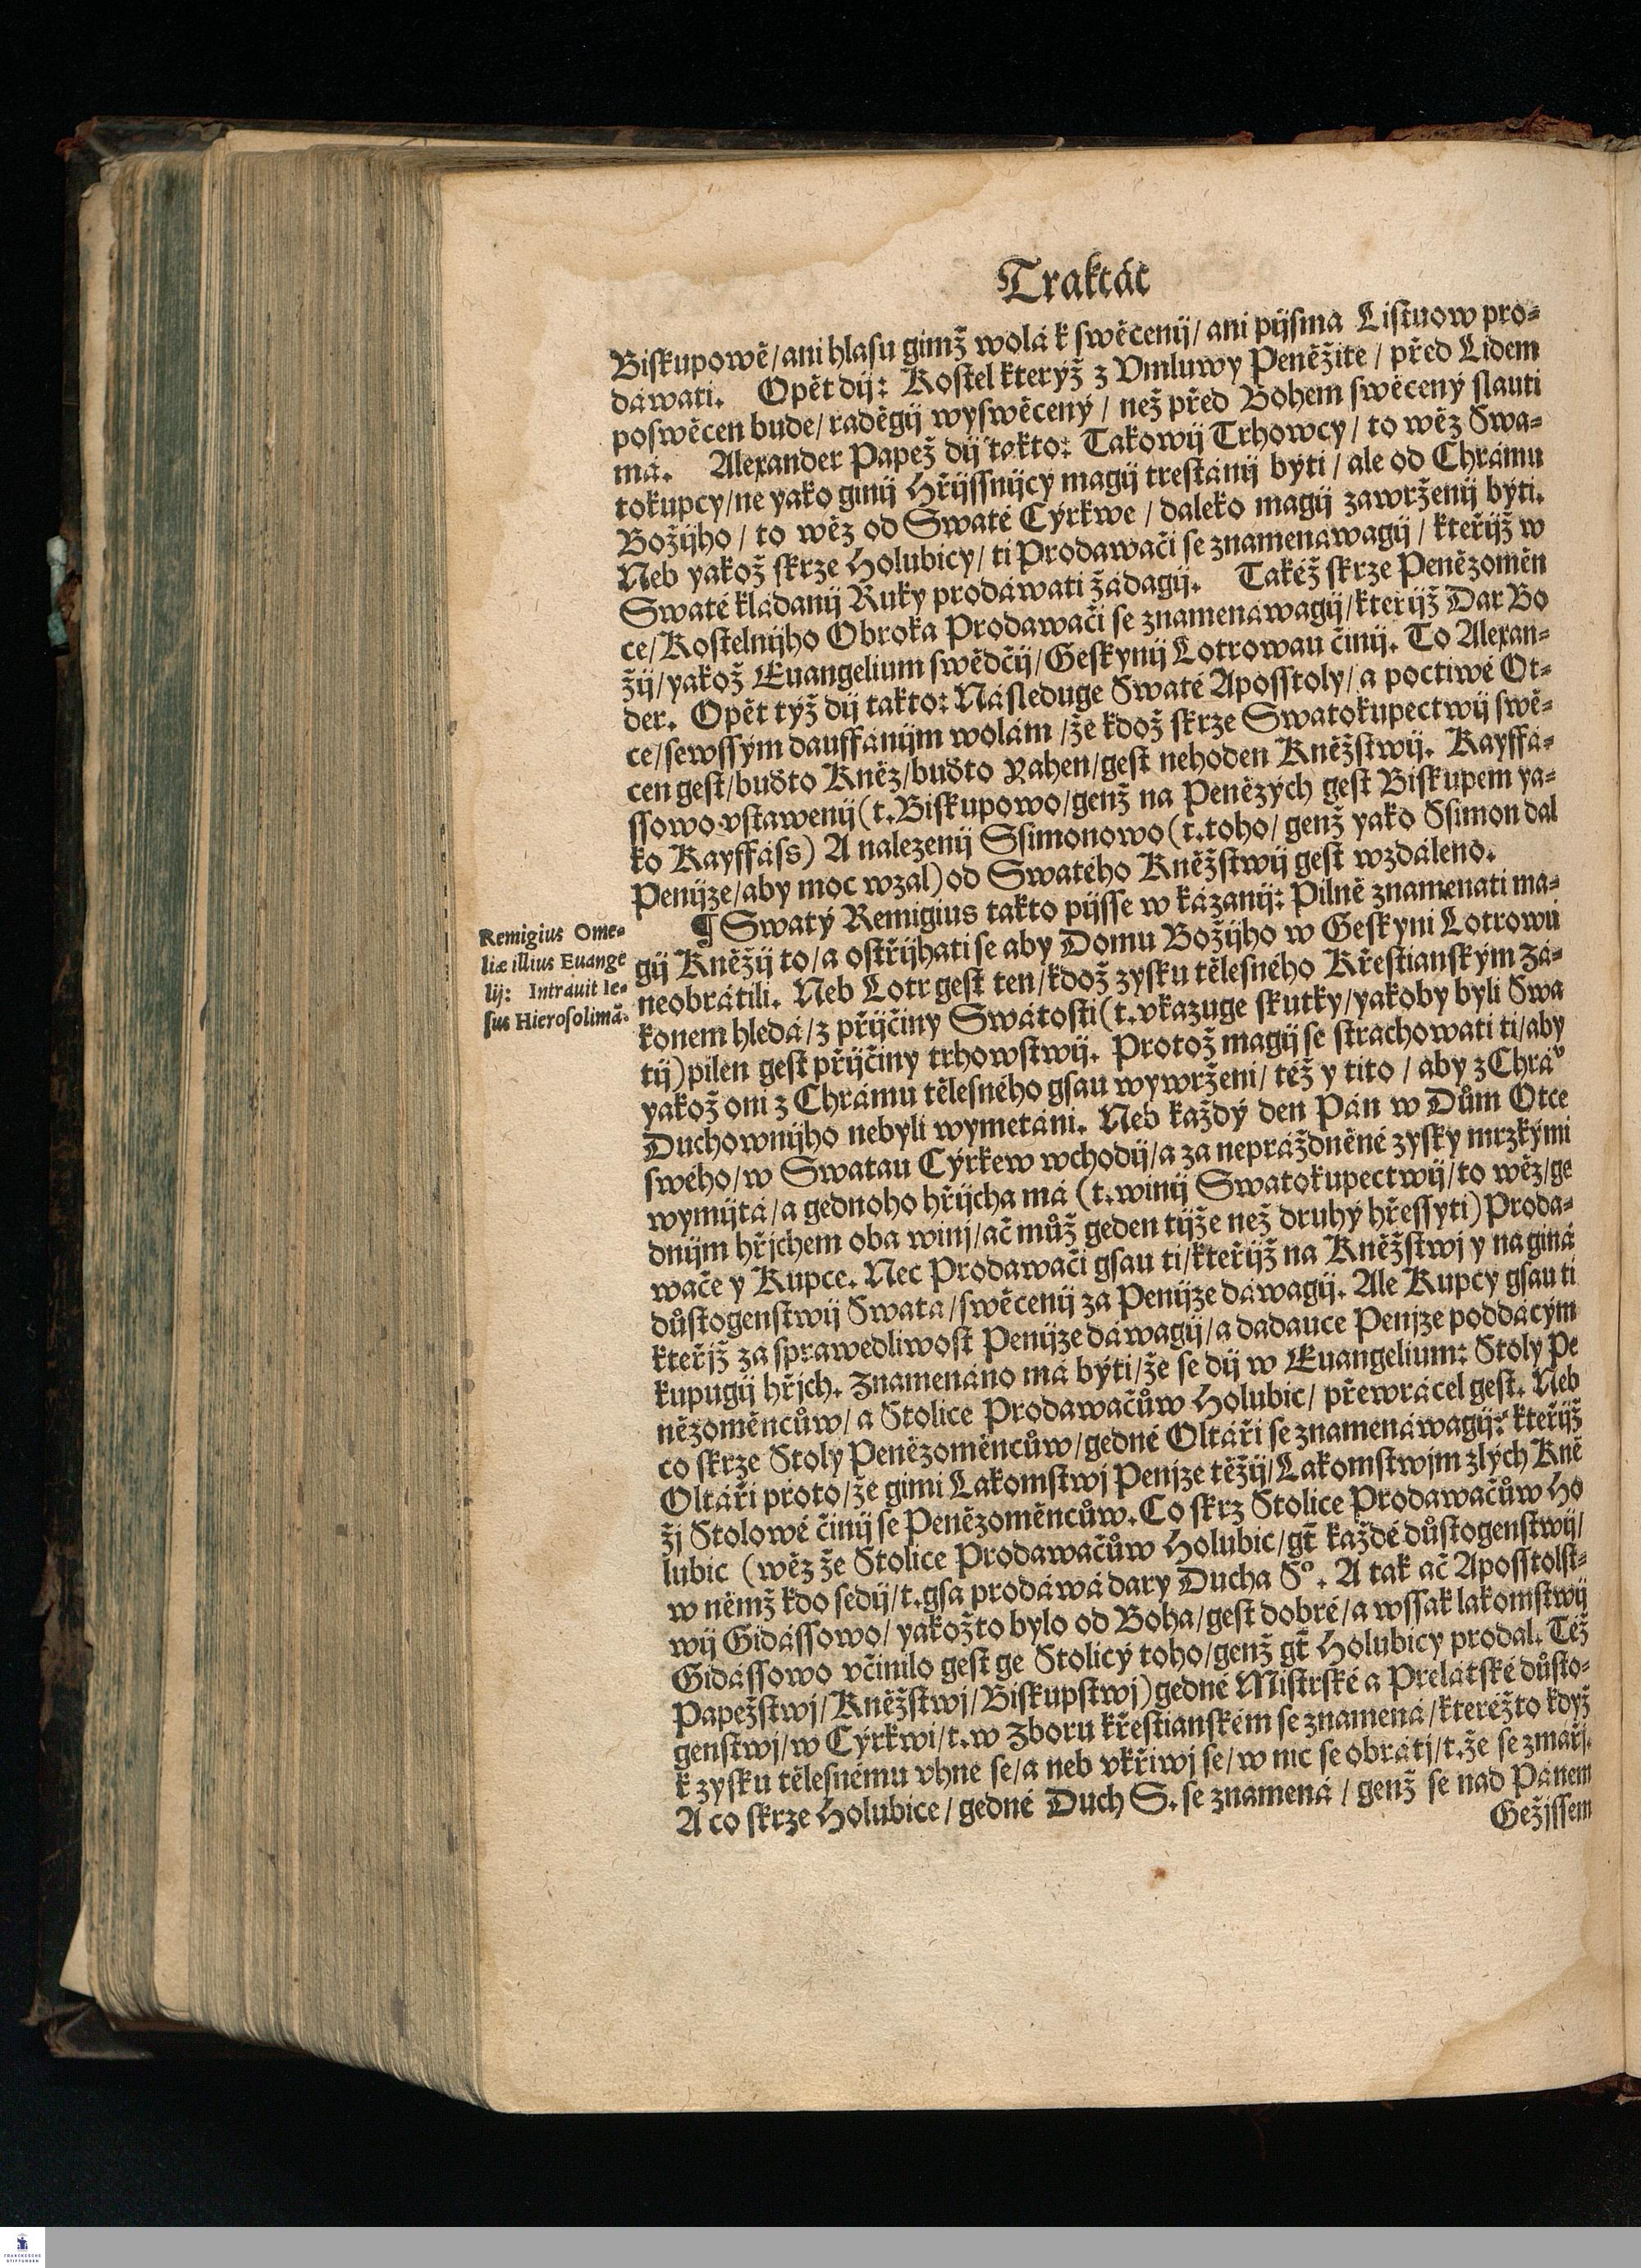 Traktát
Biskupowě/ani hlasu gimž wolá k swěcenij/ ani pijsma Listuow pro-
dáwati. Opět dij: Kostel kterýž z Vmluwy Peněžité / před Lidem
poswěcen bude/ raděgij wyswěcený / než před Bohem swěcený slauti
má. Alexander Papež dij takto: Takowij Trhowcy / to wěz Swa-
tokupcy/ne yako ginij Hřijssnijcy magij trestánij býti / ale od Chrámu
Božijho / to wěz od Swaté Cýrkwe / daleko magij zawrženij býti.
Neb yakož skrze Holubicy/ ti Prodawači se znamenáwagij / kteřijž w
Swaté kládanij Ruky prodáwati žádagij. Takéž skrze Peněžoměn
ce/Kostelnijho Obroka Prodawači se znamenáwagij/kteřijž Dar Bo
žij/yakož Euangelium swědčij/Geskynij Lotrowau činij. To Alexan-
der. Opět týž dij takto: Následuge Swaté Aposstoly/ a poctiwé Ot-
ce/sewssým dauffánijm wolám /že kdož skrze Swatokupectwij swě-
cen gest/buďto Kněz/buďto Yahen/gest nehoden Kněžstwij. Kayffá-
ssowo vstawenij (t.Biskupowo/genž na Penězých gest Biskupem ya-
ko Kayffáss) A nalezenij Ssimonowo (t.toho/ genž yako Ssimon dal
Penijze/aby moc wzal) od Swatého Kněžstwij gest wzdáleno.
¶ Swatý Remigius takto pijsse w kázanij: Pilně znamenati ma-
Remigius Ome-
liæ illius Euange
lij: Intrauit Ie-
sus Hierosolimã.
gij Kněžij to/a ostřijhati se aby Domu Božijho w Geskyni Lotrowu
neobrátili. Neb Lotr gest ten/kdož zysku tělesného Křestianským Zá-
konem hledá/z přijčiny Swátosti (t.vkazuge skutky/yakoby byli Swa
tij) pilen gest přijčiny trhowstwij. Protož magij se strachowati ti/aby
yakož oni z Chrámu tělesného gsau wywrženi/ též y tito / aby z Chráᵛ
Duchownijho nebyli wymetáni. Neb každý den Pán w Dům Otce
swého/w Swatau Cýrkew wchodij/a za neprázdněné zysky mrzkými
wymijtá/a gednoho hřijcha má (t.winij Swatokupectwij/to wěz/ge
dnijm hřjchem oba winj/ač můž geden tijže než druhý hřessyti) Proda-
wače y Kupce. Nec Prodawači gsau ti/kteřijž na Kněžstwj y na giná
důstogenstwij Swatá/swěcenij za Penijze dáwagij. Ale Kupcy gsau ti
kteřjž za sprawedliwost Penijze dáwagij/a dadauce Penjze poddacým
kupugij hřjch. Znamenáno má býti/že se dij w Euangelium: Stoly Pe
něžoměncůw/ a Stolice Prodawačůw Holubic/ přewrácel gest. Neb
co skrze Stoly Peněžoměncůw/gedné Oltáři se znamenáwagij: kteřijž
Oltáři proto/že gimi Lakomstwj Penjze těžij/Lakomstwjm zlých Kně
žj Stolowé činij se Peněžoměncůw. Co skrz Stolice Prodawačůw Ho
lubic (wěz že Stolice Prodawačůw Holubic/gt̃ každé důstogenstwij/
w němž kdo sedij/t.gsa prodáwá dary Ducha S°. A tak ač Aposstolst-
wij Gidássowo/ yakožto bylo od Boha/gest dobré/a wssak lakomstwij
Gidássowo včinilo gest ge Stolicý toho/genž gt̃ Holubicy prodal. Též
Papežstwj/Kněžstwj/Biskupstwj) gedné Mistrské a Prelátské důsto-
genstwj/w Cýrkwi/t.w Zboru křestianském se znamená/kteréžto když
k zysku tělesnému vhne se/a neb vkřiwj se/w nic se obrátj/t.že se zmařj.
A co skrze Holubice/ gedné Duch S. se znamená / genž se nad Pánem
Gežjssem